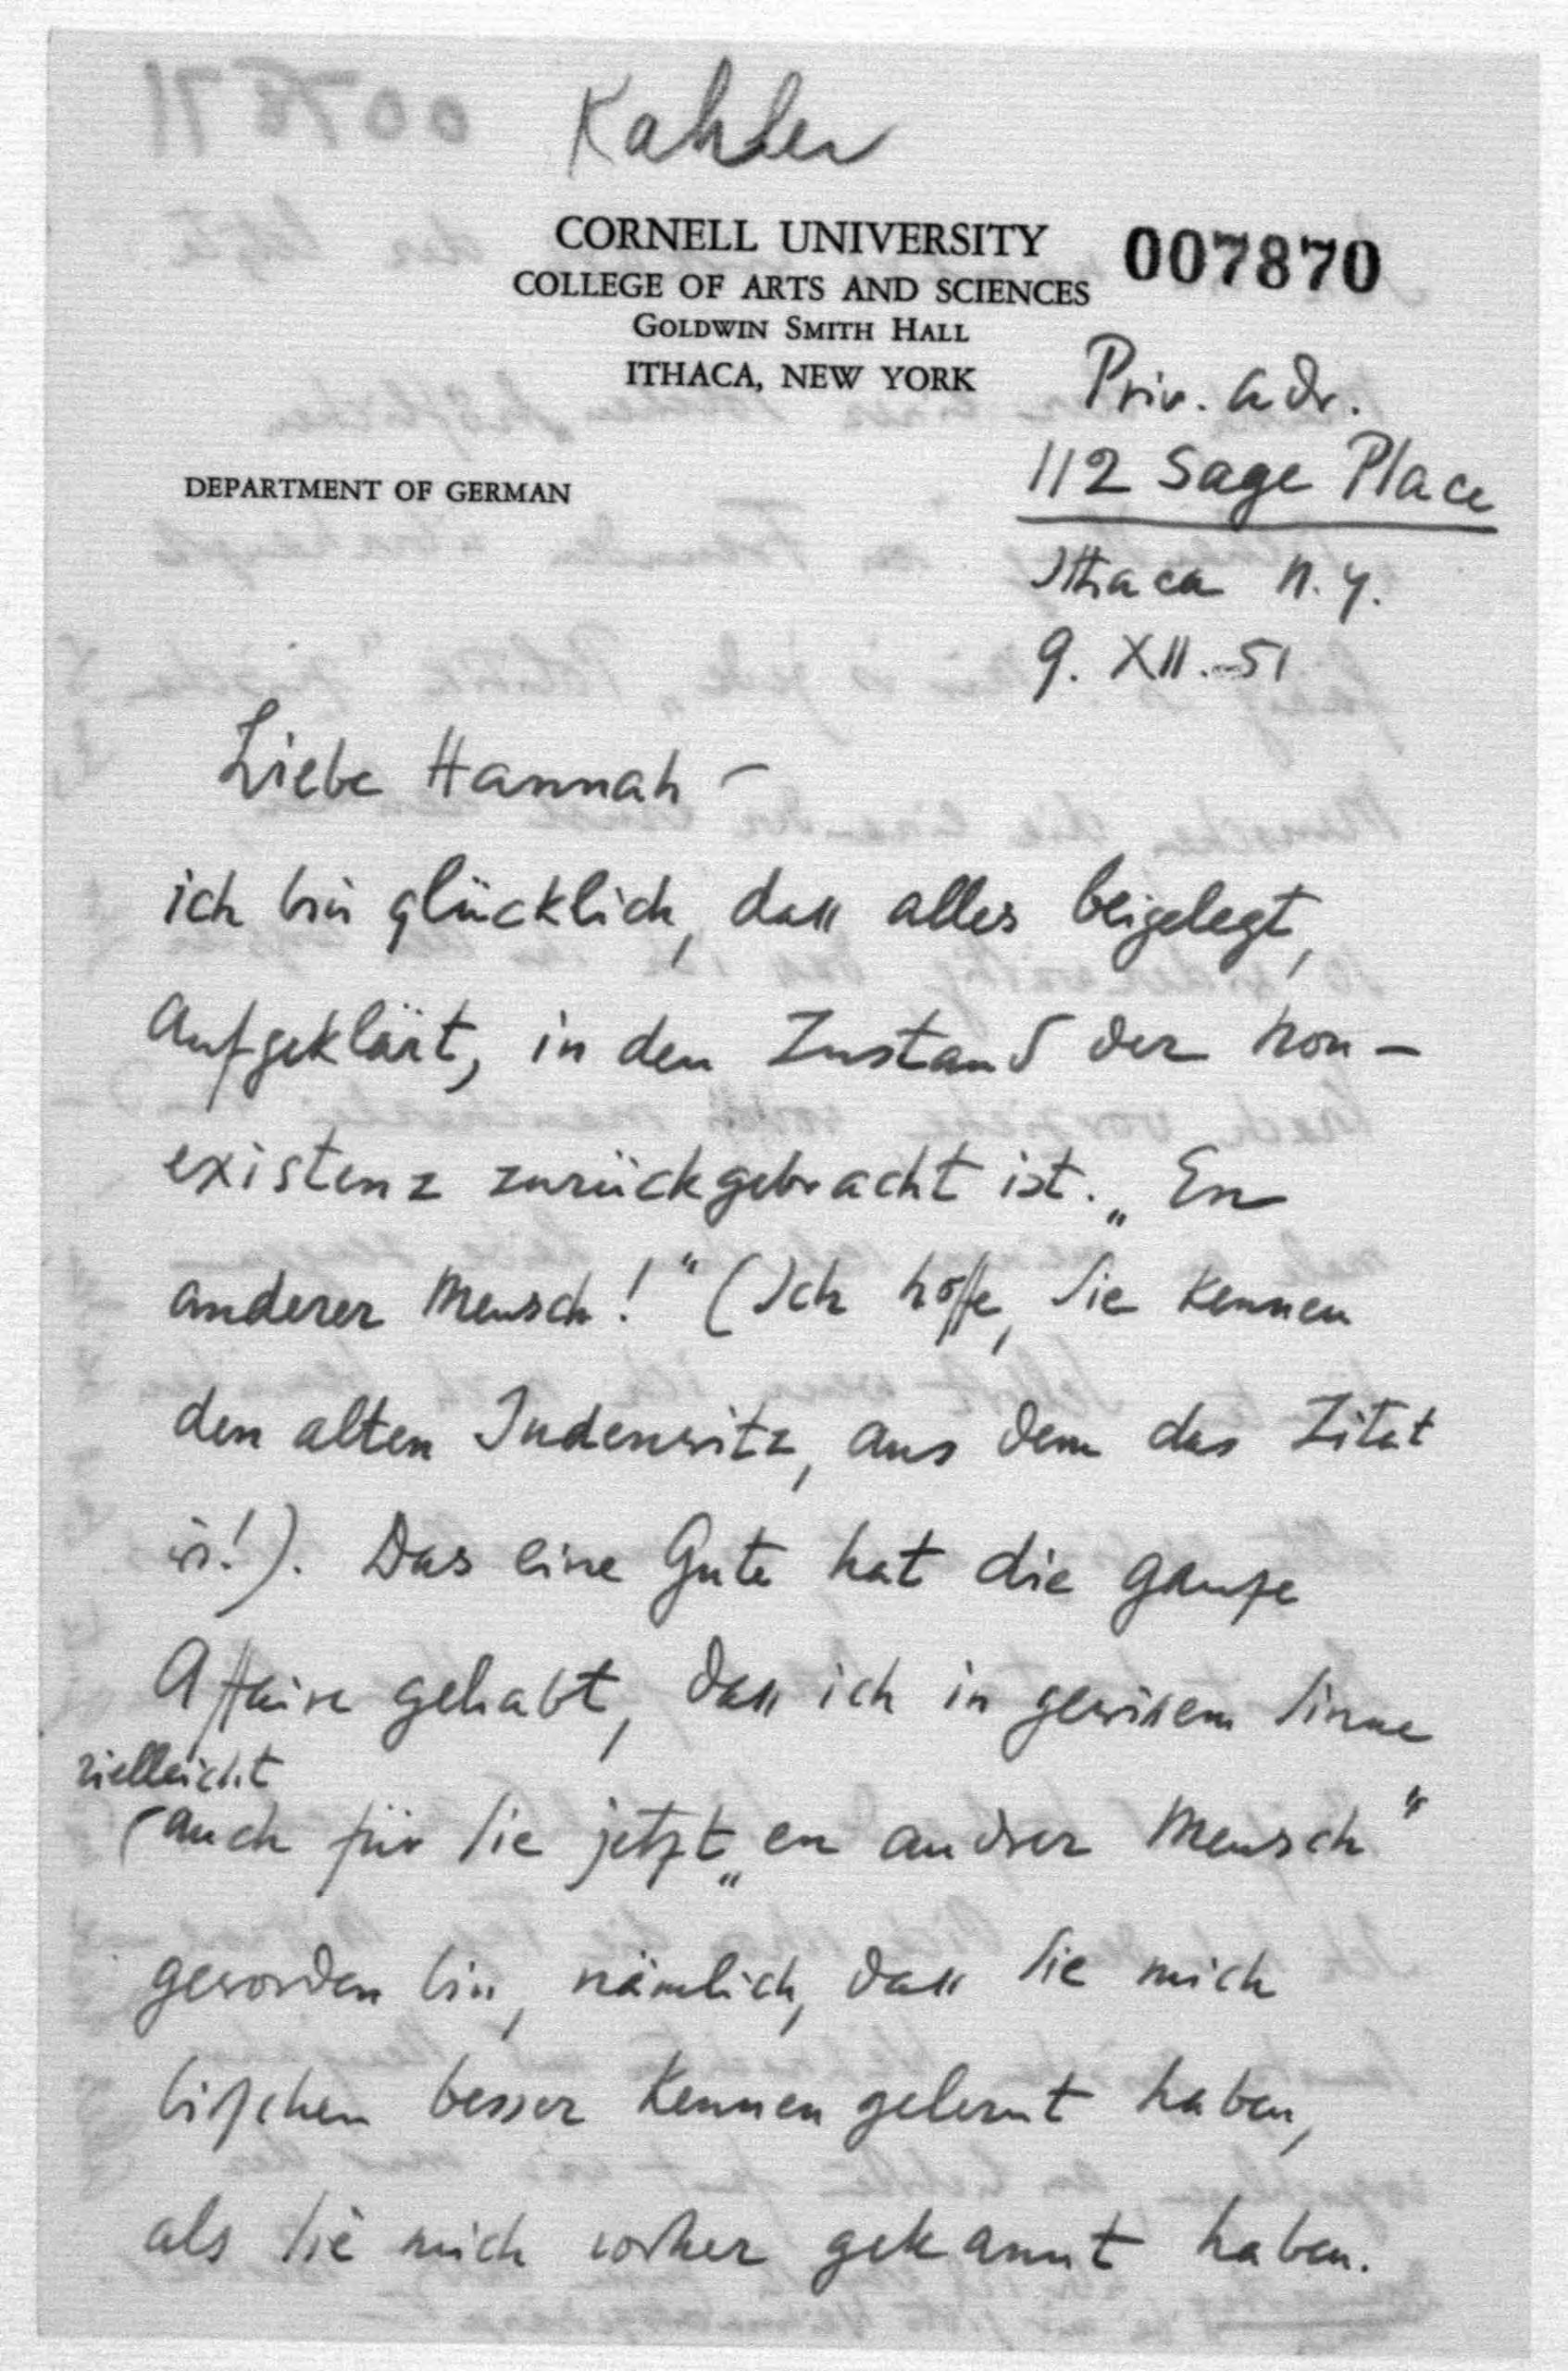 Kahler
CORNELL UNIVERSITY
007870
COLLEGE OF ARTS AND SCIENCES
GOLDWIN SMITH HALL
ITHACA, NEW YORK
Priv. Adr.
112 Sage Place
DEPARTMENT OF GERMAN
Ithaca N.Y.
9. XII. 51
Liebe Hannah –
ich bin glücklich, dass alles beigelegt,
aufgeklärt, in den Zustand der Non-
existenz zurückgebracht ist. „En
anderer Mensch!“ (Ich hoffe, Sie kennen
den alten Judenwitz, aus dem das Zitat
is!). Das eine Gute hat die ganze
Affaire gehabt, dass ich in gewissem Sinne
vielleicht
(auch für Sie jetzt „en andrer Mensch“
geworden bin, nämlich, dass Sie mich
bißchen besser kennen gelernt haben,
als Sie mich vorher gekannt haben.